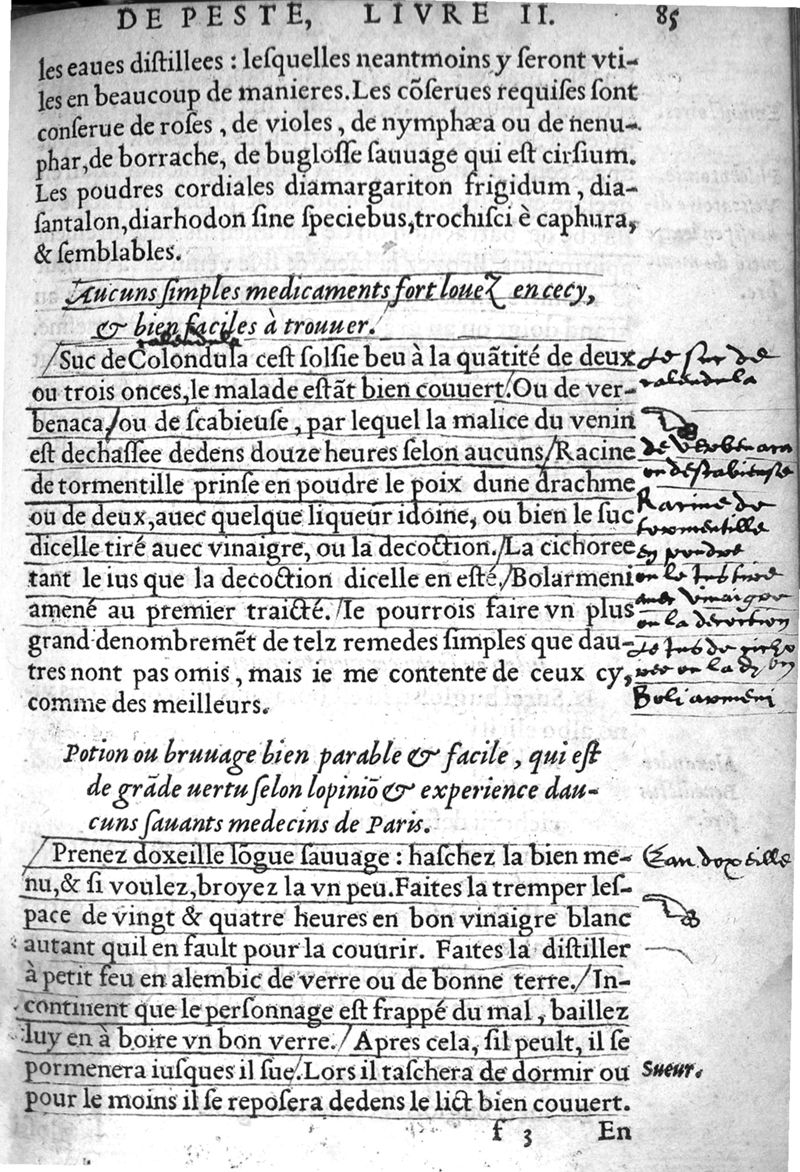 DE PESTE, LIVRE II. 85
les eaues diſtillees : leſquelles neantmoins y ſeront vti-
les en beaucoup de manieres. Les cõſerues requiſes ſont
conſerue de roſes , de violes , de nymphæa ou de nenu-
phar, de borrache, de bugloſſe ſauuage qui eſt cirſium.
Les poudres cordiales diamargariton frigidum , dia-
ſantalon, diarhodon ſine ſpeciebus, trochiſci è caphura,
& ſemblables.
Aucuns ſimples medicaments fort louez en cecy,
& bien faciles à trouuer.
calendula
Suc de Colondula ceſt ſolſie beu à la quãtité de deux
ou trois onces, le malade eſtãt bien couuert. Ou de ver-
benaca, ou de ſcabieuſe , par lequel la malice du venin
eſt dechaſſee dedens douze heures ſelon aucuns. Racine
de tormentille prinſe en poudre le poix dune drachme
ou de deux, auec quelque liqueur idoine, ou bien le ſuc
dicelle tiré auec vinaigre, ou la decoction. La cichoree
tant le ius que la decoction dicelle en eſté. Bolarmeni
amené au premier traicté. Ie pourrois faire vn plus
grand denombremẽt de telz remedes ſimples que dau-
tres nont pas omis, mais ie me contente de ceux cy,
comme des meilleurs.
Le suc de
calendula
de Verbenaca
ou de scabieuse
Racine de
tormentille
en poudre
ou le
auec vinaigre
ou la decoction
Le Ius de
ou la
Boli armeni
Potion ou bruuage bien parable & facile , qui eſt
de grãde uertu ſelon lopiniõ & experience dau-
cuns ſauants medecins de Paris.
Prenez doxeille lõgue ſauuage : haſchez la bien me-
nu, & ſi voulez, broyez la vn peu. Faites la tremper leſ-
pace de vingt & quatre heures en bon vinaigre blanc
autant quil en fault pour la couurir. Faites la diſtiller
à petit feu en alembic de verre ou de bonne terre. In-
continent que le perſonnage eſt frappé du mal , baillez
luy en à boire vn bon verre. Apres cela, ſil peult, il ſe
pormenera iuſques il ſue. Lors il taſchera de dormir ou
pour le moins il ſe repoſera dedens le lict bien couuert.
Eau doxeille
Sueur.
f 3 En